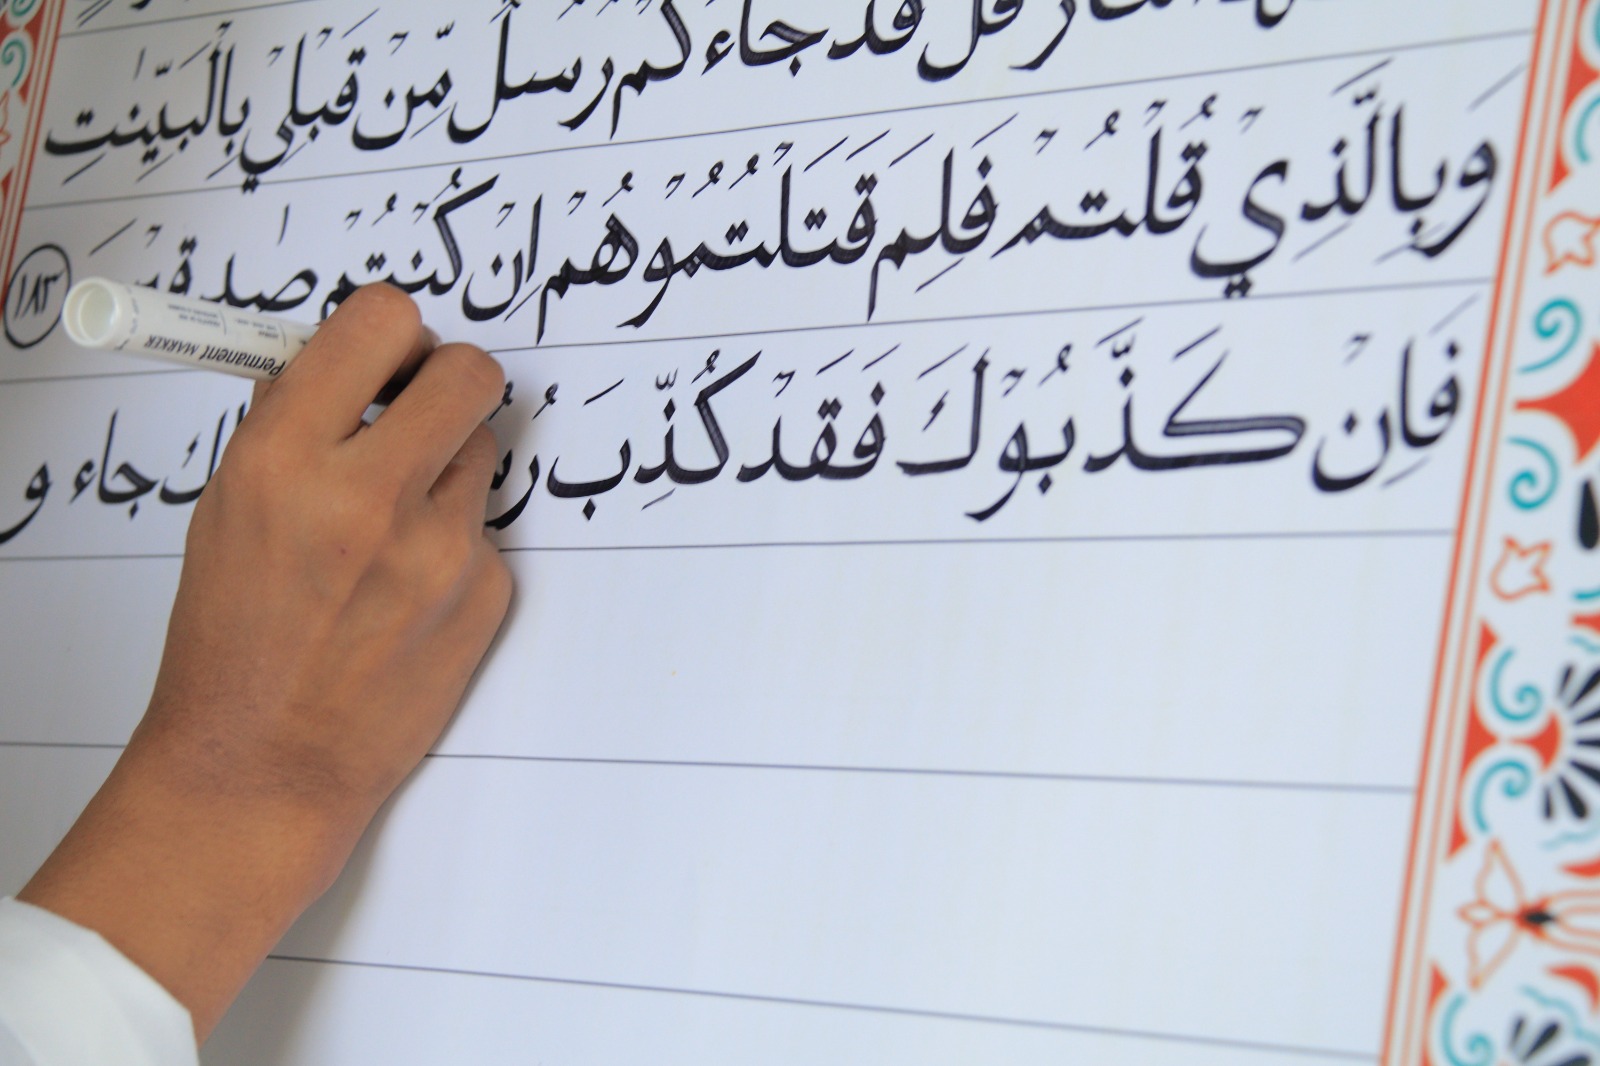 قل قد جاءكم رسل مّن قبلي بالبيّنت
وَبِالَّذِي قُلْتُمْ فَلِمَ قَتَلْتُمُوْهُمْ اِنْ كُنْتُمْ صٰدقيْنَ ١٨٣
فَاِنْ كَذَّبُوْكَ فَقَدْ كُذِّبَ جاء و
Permanent MARKER